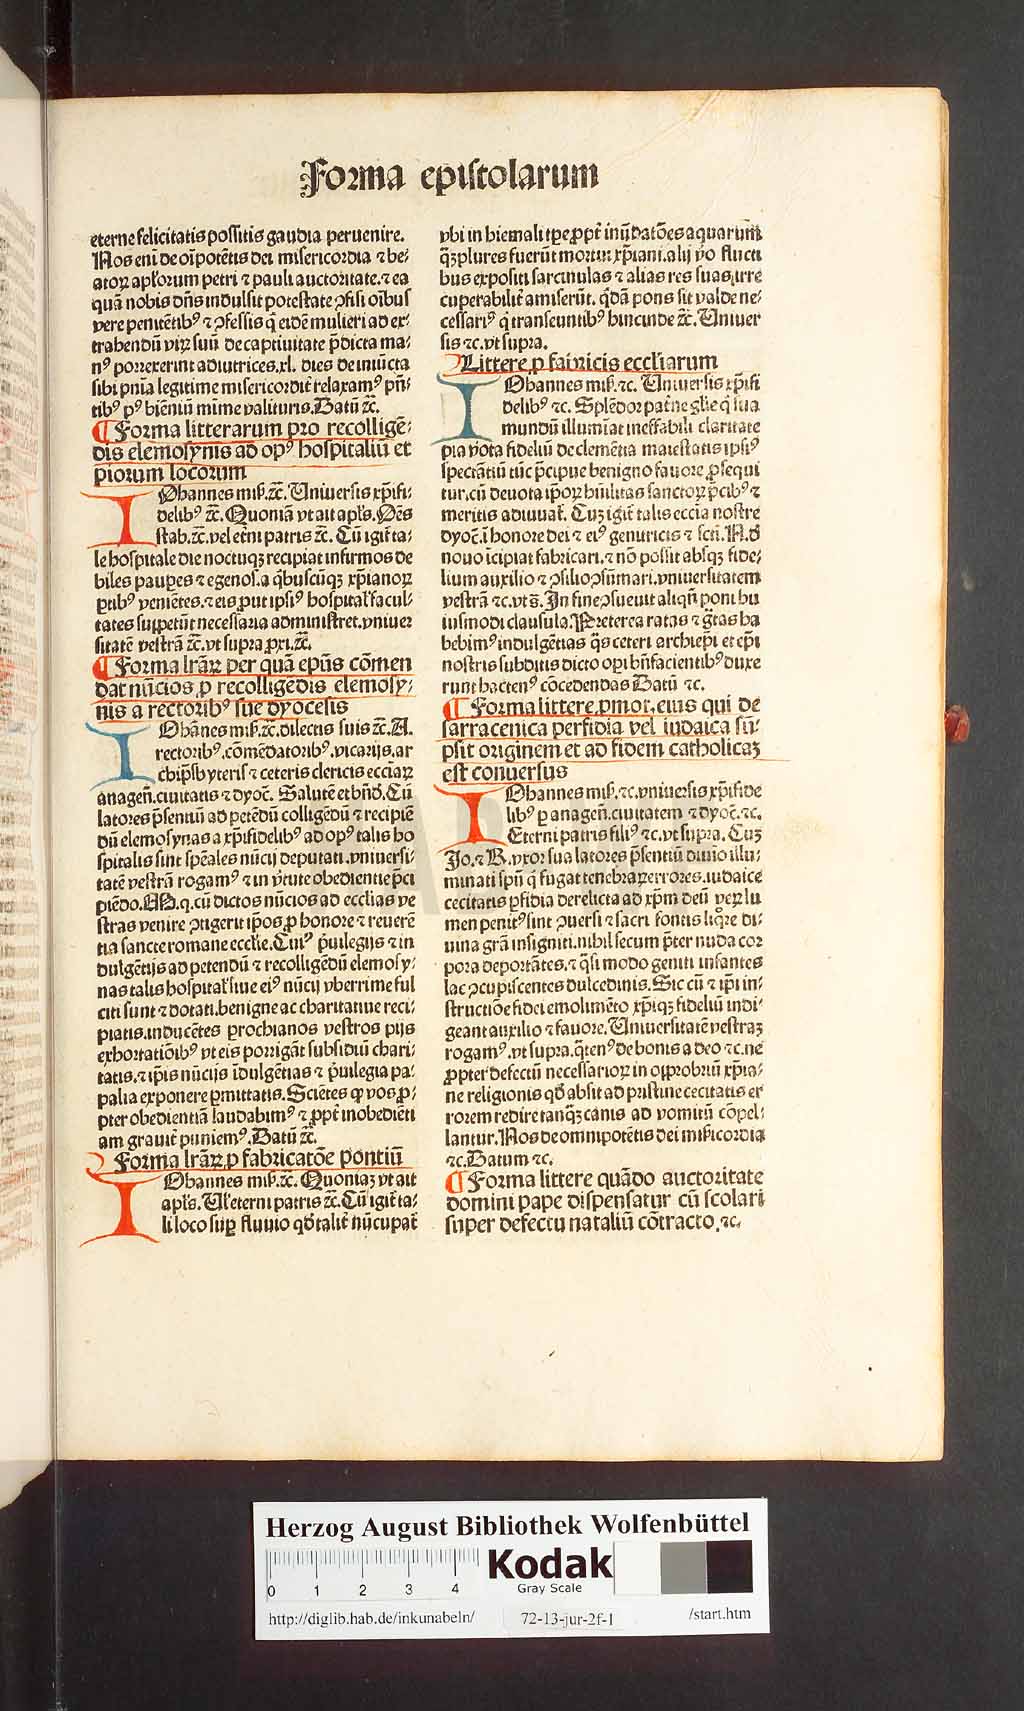 Forma epistolarum
eterne felicitatis possitis gaudia peruenire.
Nos eni de oipotētis dei misericordia ⁊ be-
atoꝝ apl'orum petri ⁊ pauli auctoritate.⁊ ea
quā nobis dn̄s indulsit potestate ꝯfisi oībus
vere penitētibꝰ ⁊ ꝯfessis q̄ eidē mulieri ad ex-
trahendū viꝝ suū de captiuitate p̄dicta ma-
nꝰ porrexerint adiutrices.xl. dies de iniūcta
sibi pn̄ia legitime misericordit̄ relaxamꝰ pn̄-
tibꝰ pꝰ biēniū mīme valituris.Datū ⁊c̄.
¶ Forma litterarum pro recolligē-
dis elemosynis ad opꝰ hospitaliū et
piorum locorum
IOhannes mis̄.⁊c̄.Uniuersis xp̄ifi-
delibꝰ ⁊c̄. Quoniā vt ait apl's.Oēs
stab.⁊c̄.vel et̄ni patris ⁊c̄. Cū igit̄ ta-
le hospitale die noctuqꝫ recipiat infirmos de
biles paupes ⁊ egenos.a q̄buscūqꝫ xp̄ianoꝝ
ꝑtibꝰ veniētes.⁊ eis ꝓut ipsiꝰ hospital' facul-
tates suppetūt necessaria administret.vniuer
sitatē vestrā ⁊c̄.vt supra ꝓxi.⁊c̄.
¶ Forma lr̄aꝝ per quā ep̄us cōmen
dat nūcios ꝓ recolligēdis elemosy-
nis a rectoribꝰ sue dyocesis
IOhānes mis̄.⁊c̄.dilectis suis ⁊c̄.A.
rectoribꝰ.cōmēdatoribꝰ.vicarijs.ar
chip̄sbyteris ⁊ ceteris clericis ecciaꝝ
anagen̄.ciuitatis ⁊ dyoc̄. Salutē et bn̄d̄.Cū
latores p̄sentiū ad petēdū colligēdū ⁊ recipiē
dū elemosynas a xp̄ifidelibꝰ ad opꝰ talis ho
spitalis sint sp̄eales nūcij deputati.vniuersi-
tatē vestrā rogamꝰ ⁊ in v̄tute obedientie p̄ci
piēdo.M.q.cū dictos nūcios ad ecclias ve
stras venire ꝯtigerit ip̄os ꝓ honore ⁊ reuerē
tia sancte romane ecclie. p̄uilegijs ⁊ in
dulgētijs ad petendū ⁊ recolligēdū elemosy-
nas talis hospital' siue eiꝰ nūcij vberrime ful
citi sunt ⁊ dotati.benigne ac charitatiue reci-
piatis.inducētes ꝑochianos vestros pijs
exhortatiōibꝰ vt eis porrigāt subsidiū chari-
tatis.⁊ ip̄is nūcijs īdulgētias ⁊ p̄uilegia pa-
palia exponere ꝑmittatis.Sciētes ꝙ vos ꝓ-
pter obedientiā laudabimꝰ ⁊ ꝓpt̄ inobediēti
am grauit̄ puniemꝰ.Datū ⁊c̄.
Forma lr̄aꝝ ꝓ fabricatōe pontiū
IOhannes mis̄.⁊c̄. Quoniaꝫ vt ait
apl's.Ul' eterni patris ⁊c̄.Cū igit̄ ta-
li loco suꝑ fluuio qd̄ talit̄ nūcupat̄
vbi in hiemali tp̄e ꝓpt̄ inūdatōes aquarum
qꝫplures fuerūt mortui xp̄iani.alij vo fluctі
bus expositi sarcinulas ⁊ alias res suas irre
cuperabilit̄ amiserūt. q̄dā pons sit valde ne-
cessariꝰ q̄ transeuntibꝰ hincinde ⁊c̄. Uniuer
sis ⁊c.vt supra.
Littere ꝓ fabricis eccliarum
IOhannes mis̄.⁊c. Uniuersis xp̄ifi
delibꝰ ⁊c. Splēdor pat̄ne glīe q̄ sua
mundū illumīat ineffabili claritate
pia vota fidēliū de clemētia maiestatis ipsiꝰ
sperātiū tūc p̄cipue benigno fauore ꝓsequi
tur.cū deuota ip̄oꝝ hūilitas sanctoꝝ p̄cibꝰ ⁊
meritis adiuuat̄. Cuꝫ igit̄ talis eccia nostre
dyoc̄.ī honore dei ⁊ eiꝰ genitricis ⁊ scti.N.d̄
nouo īcipiat fabricari.⁊ nō possit absqꝫ fide-
lium auxilio ⁊ ꝯsilio ꝯsūmari.vniuersitatem
vestrā ⁊c.vt s̄. In fine ꝯsueuit aliqn̄ poni hu
iusmodi clausula.Preterea ratas ⁊ gr̄tas ha
bebimꝰ indulgētias q̄s ceteri archiep̄i et ep̄i
nostris subditis dicto opi bn̄facientibꝰ duxe
runt hactenꝰ cōcedendas Datū ⁊c.
¶ Forma littere.ꝓmot.eius qui de
sarracenica perfidia vel iudaica sū-
psit originem et ad fidem catholicaꝫ
est conuersus
IOhannes mis̄.⁊c.vniuersis xp̄ifide
libꝰ ꝑ anagen̄.ciuitatem ⁊ dyoc̄.⁊c.
Eterni patris filiꝰ ⁊c.vt supra. Cuꝫ
Jo.⁊ B.vxor sua latores p̄sentiū diuio illu-
minati spū q̄ fugat tenebraꝝ errores.iudaice
cecitatis ꝑfidia derelicta ad xp̄m deū veꝝ lu
men penitꝰ sint ꝯuersi ⁊ sacri fontis liq̄re di-
uina gr̄a insigniti.nihil secum p̄ter nuda cor
pora deportātes.⁊ q̄si modo geniti infantes
lac ꝯcupiscentes dulcedinis.Sic cū ⁊ ip̄i in-
structiōe fidei emolimēto xp̄iqꝫ fideliū indi-
geant auxilio ⁊ fauore.Uniuersitatē vestraꝫ
rogamꝰ.vt supra.q̄tenꝰ de bonis a deo ⁊c.ne
ꝓpter defectū necessarioꝝ in opprobriū xp̄ia-
ne religionis qd̄ absit ad pristine cecitatis er
rorem redire tanqꝫ canis ad vomitū cōpel-
lantur.Nos de omnipotētis dei mis̄icordia
⁊c.Datum ⁊c.
¶ Forma littere quādo auctoritate
domini pape dispensatur cū scolari
super defectu nataliū cōtracto.⁊c.
Herzog August Bibliothek Wolfenbüttel
0 1 2 3 4
Kodak
Gray Scale
http://diglib.hab.de/inkunabeln/
72-13-jur-2f-1
/start.htm